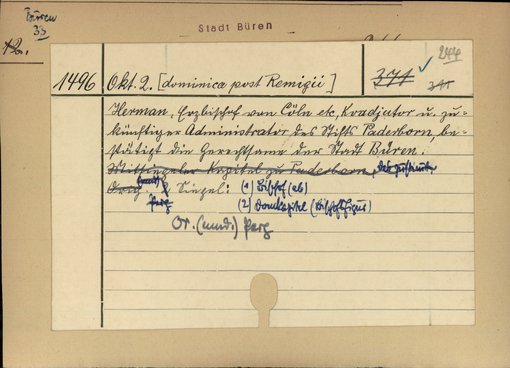 Büren
33
Stadt Büren
12.
244
1496 Okt. 2. [dominica post Remigii] 371
341
Herman, Erzbischof von Cöln etc, Koadjutor u. zu-
künftiger Administrator des Stifts Paderborn, be-
stätigt die Gerechtsame der Stadt Büren.
Mitsiegeler Kapitel zu Paderborn,
Orig. 2 Siegel: (1) Bischof (ab)
Perg (2) Domkapitel
Or. (mud.) Perg